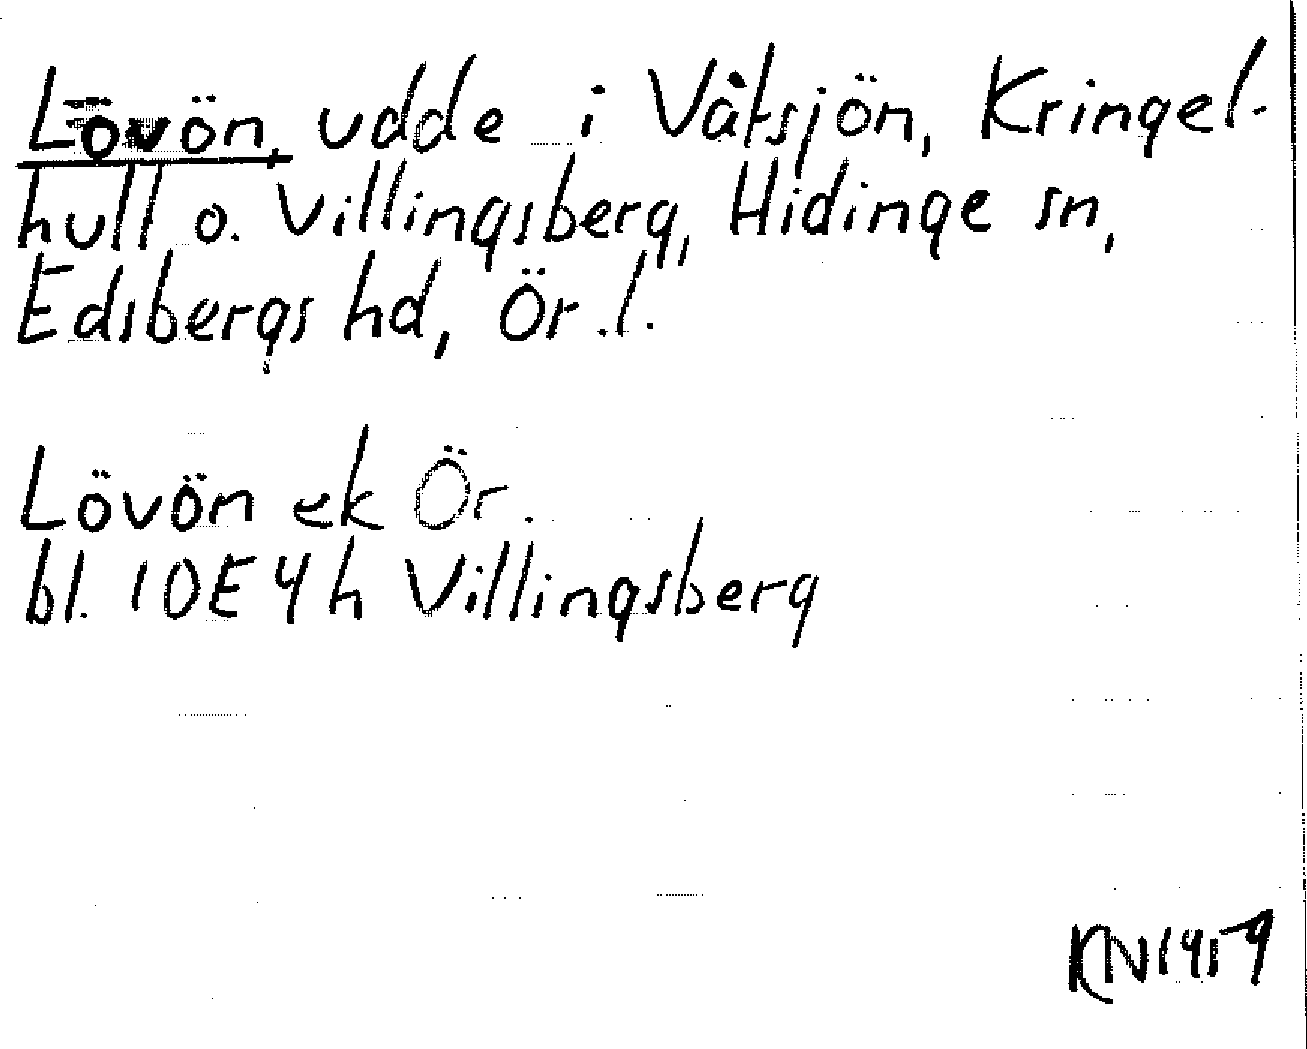 Lövön, udde i Våtsjön, Kringel-
hull o. Villingsberg, Hidinge sn,
Edsbergs hd, Ör.l.
Lövön ek Ör.
bl. 10E4h Villingsberg